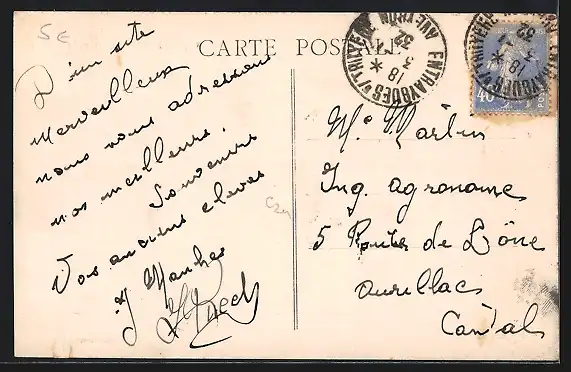 5€
CARTE POSTALE
D'un site
merveilleux
nous vous adressons
nos meilleurs
souvenirs
Vos anciens élèves
J
ENTRAYGUES s/ TRUYERE
AVEYRON
18 *
3
32
40
POSTES
Mr Martin
Ing. agronome
5 Route de
Aurillac
Cantal